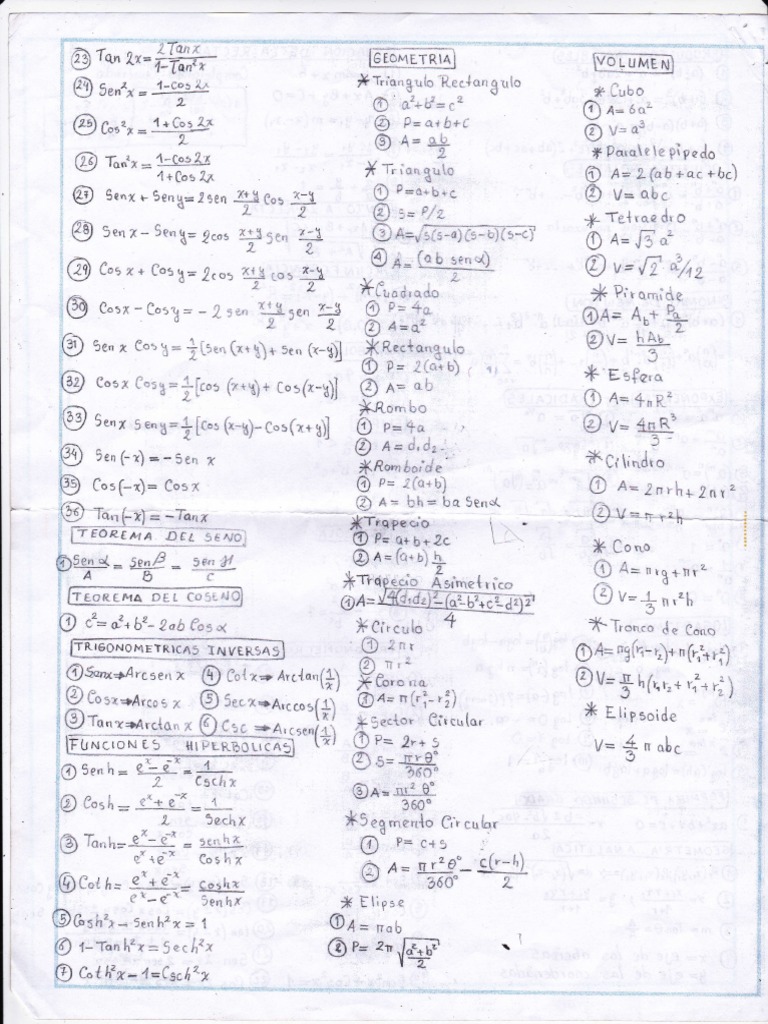 23 Tan 2x = 2Tanx / 1-Tan²x
24 Sen²x = 1-Cos2x / 2
25 Cos²x = 1+Cos2x / 2
26 Tan²x = 1-Cos2x / 1+Cos2x
27 Senx + Seny = 2sen x+y/2 Cos x-y/2
28 Senx - Seny = 2cos x+y/2 sen x-y/2
29 Cosx + Cosy = 2cos x+y/2 cos x-y/2
30 Cosx - Cosy = -2 sen x+y/2 sen x-y/2
31 Senx Cosy = 1/2 [Sen(x+y) + Sen(x-y)]
32 Cosx Cosy = 1/2 [cos(x+y) + Cos(x-y)]
33 Senx Seny = 1/2 [Cos(x-y) - Cos(x+y)]
34 Sen(-x) = -Sen x
35 Cos(-x) = Cosx
36 Tan(-x) = -Tanx
TEOREMA DEL SENO
1 Senα/A = Senβ/B = sen
/C
TEOREMA DEL COSENO
1 c² = a² + b² - 2ab Cosα
TRIGONOMETRICAS INVERSAS
1 Senx ⇒ Arcsen x 4 Cotx ⇒ Arctan(1/x)
2 Cosx ⇒ Arcos x 5 Secx ⇒ Arccos(1/x)
3 Tanx ⇒ Arctan x 6 Csc ⇒ Arcsen(1/x)
FUNCIONES HIPERBOLICAS
1 Senh = e^x - e^-x / 2 = 1 / Cschx
2 Cosh = e^x + e^-x / 2 = 1 / Sechx
3 Tanh = e^x - e^-x / e^x + e^-x = senhx / Coshx
4 Coth = e^x + e^-x / e^x - e^-x = coshx / Senhx
5 Cosh²x - Senh²x = 1
6 1 - Tanh²x = Sech²x
7 Coth²x - 1 = Csch²x
GEOMETRIA
* Triangulo Rectangulo
1 a² + b² = c²
2 P = a+b+c
3 A = ab/2
* Triangulo
1 P = a+b+c
2 S = P/2
3 A = √s(s-a)(s-b)(s-c)
4 A = (ab senα)/2
* Cuadrado
1 P = 4a
2 A = a²
* Rectangulo
1 P = 2(a+b)
2 A = ab
* Rombo
1 P = 4a
2 A = d₁d₂
* Romboide
1 P = 2(a+b)
2 A = bh = ba Senα
* Trapecio
1 P = a+b+2c
2 A = (a+b) h/2
* Trapecio Asimetrico
1 A = √4(d₁d₂)² - (a²-b²+c²-d²)² / 4
* Circulo
1 2πr
2 πr²
* Corona
1 A = π(r₁²-r₂²)
* Sector Circular
1 P = 2r + s
2 S = πrθ°/360°
3 A = πr²θ°/360°
* Segmento Circular
1 P = c+s
2 A = πr²θ°/360° - c(r-h)/2
* Elipse
1 A = πab
2 P = 2π √a²+b²/2
VOLUMEN
* Cubo
1 A = 6a²
2 V = a³
* Paralelepipedo
1 A = 2(ab+ac+bc)
2 V = abc
* Tetraedro
1 A = √3 a²
2 V = √2 a³/12
* Piramide
1 A = Ab + Pa/2
2 V = hAb/3
* Esfera
1 A = 4πR²
2 V = 4πR³/3
* Cilindro
1 A = 2πrh + 2πr²
2 V = πr²h
* Cono
1 A = πrg + πr²
2 V = 1/3 πr²h
* Tronco de Cono
1 A = πg(r₁-r₂) + π(r₁²+r₂²)
2 V = π/3 h(r₁r₂+r₁²+r₂²)
* Elipsoide
V = 4/3 πabc